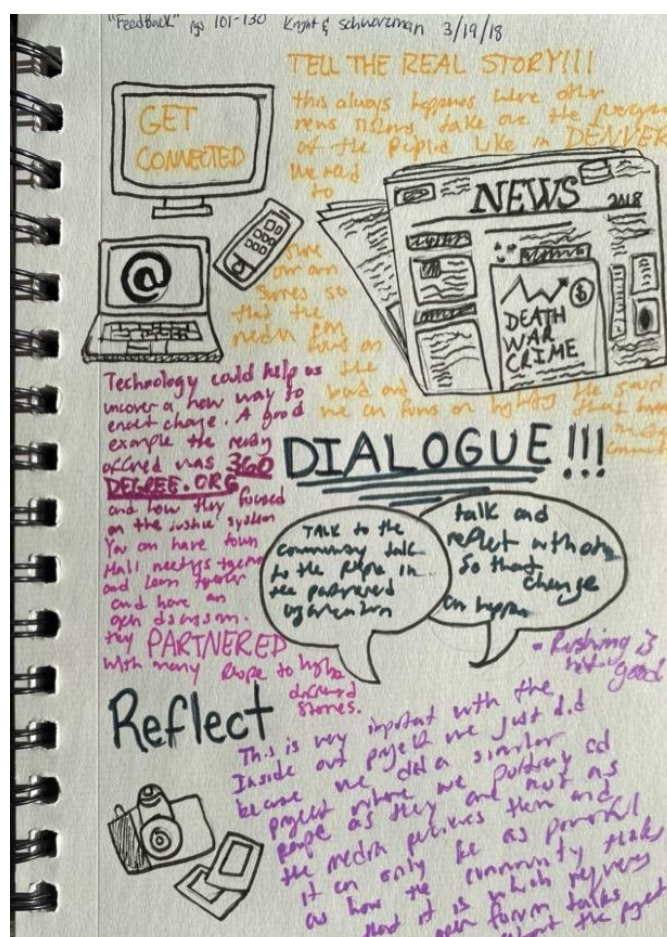 "Feedback" pgs 101-130 Knight & Schwarzman 3/19/18
TELL THE REAL STORY!!!
this always happens were other
news take over the
of the people like in DENVER
We need
to
GET
CONNECTED
NEWS
2018
DEATH
WAR
CRIME
@
our own
stories so
that the
media can
focus on
the
and
we can focus on the
that
Technology could help us
uncover a new way to
enact change. A good
example the
offered was 360
DEGREE.ORG
and how they focused
on the justice system
You can have town
Hall meetings together
and learn together
and have an
open discussion.
they PARTNERED
with many people to
different
stories.
DIALOGUE!!!
TALK to the
community talk
to the people in
the partnered
organization
talk and
reflect with others
So that
change
can happen
- Rushing is
not good
Reflect
This is very important with the
Inside out project we just did
because we did a similar
project where we
people as they are not as
the media perceives them and
it can only be as powerful
as how the community
it is which
open forum talks
about the project